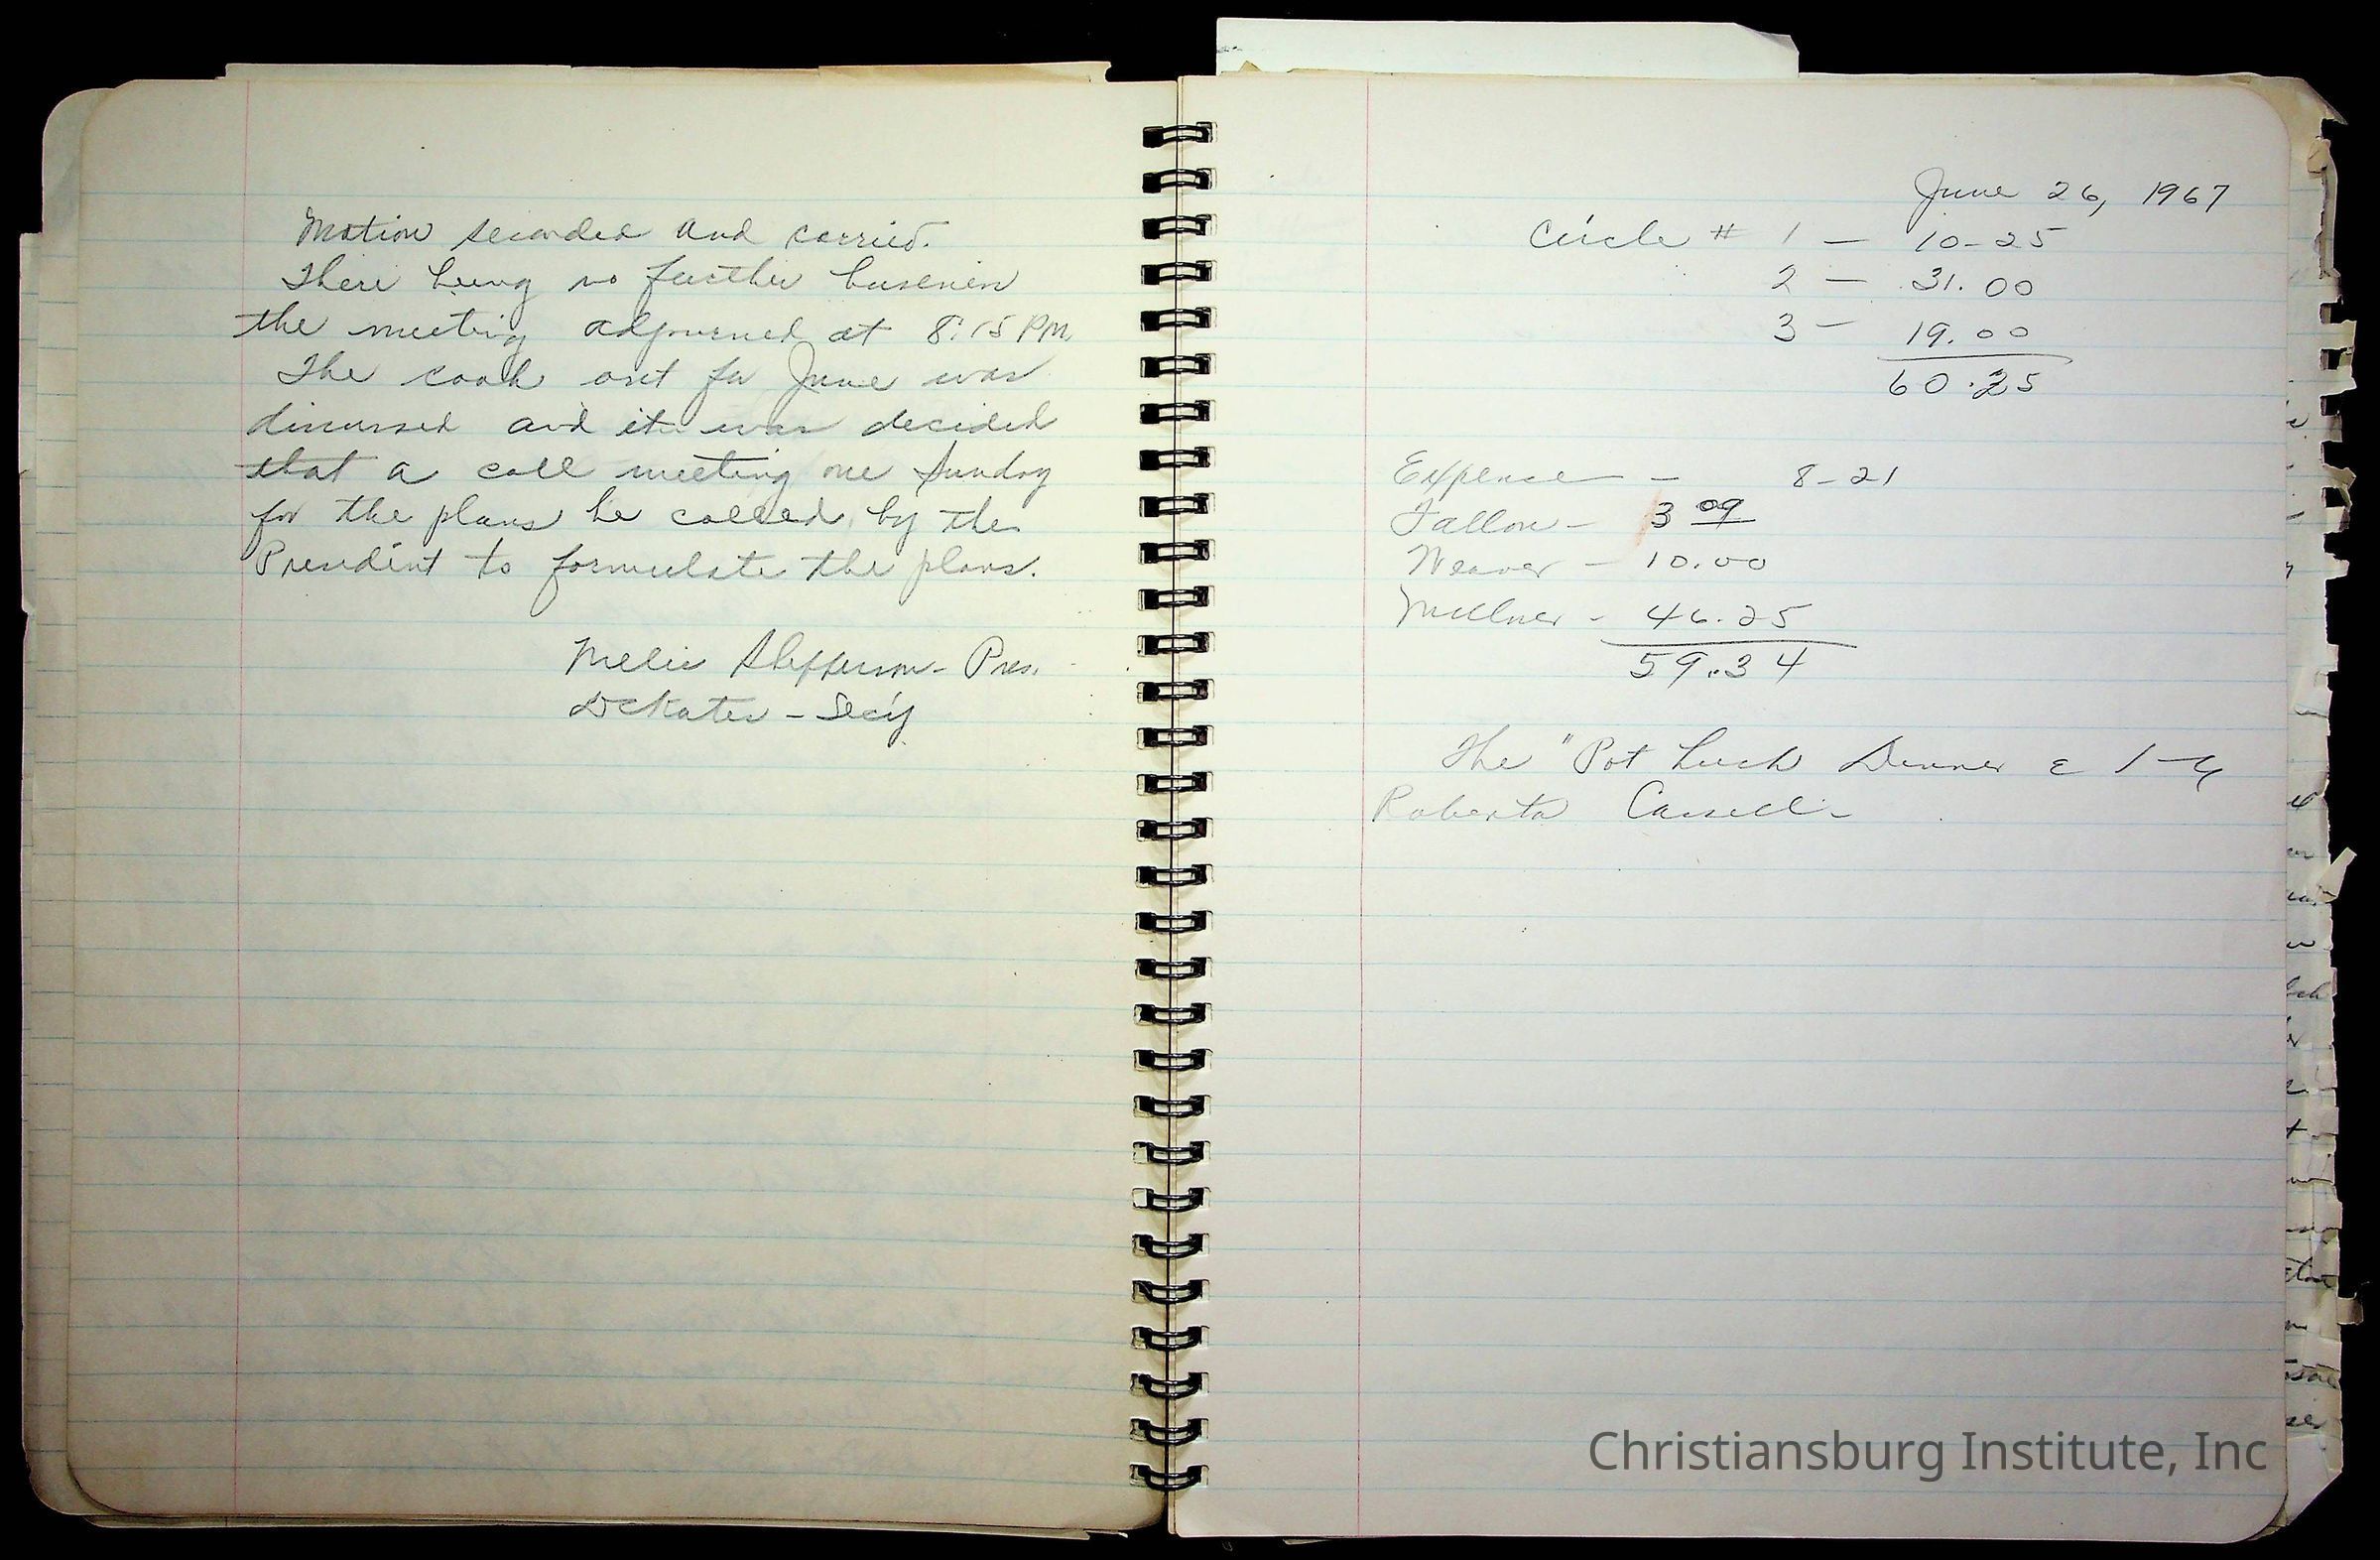 Motion seconded and carried.
There being no further business
the meeting adjourned at 8:15 PM.
The cook out for June was
discussed and it was decided
that a call meeting one Sunday
for the plans be called by the
President to formulate the plans.
Pres.
DCKates - Sec'y
June 26, 1967
Circle # 1 — 10-25
2 — 31.00
3 — 19.00
60.25
Expense — 8-21
Fallon - 3 09
Weaver - 10.00
Millner - 46.25
59.34
The "Pot Luck Dinner
Roberta Cassell-
Christiansburg Institute, Inc